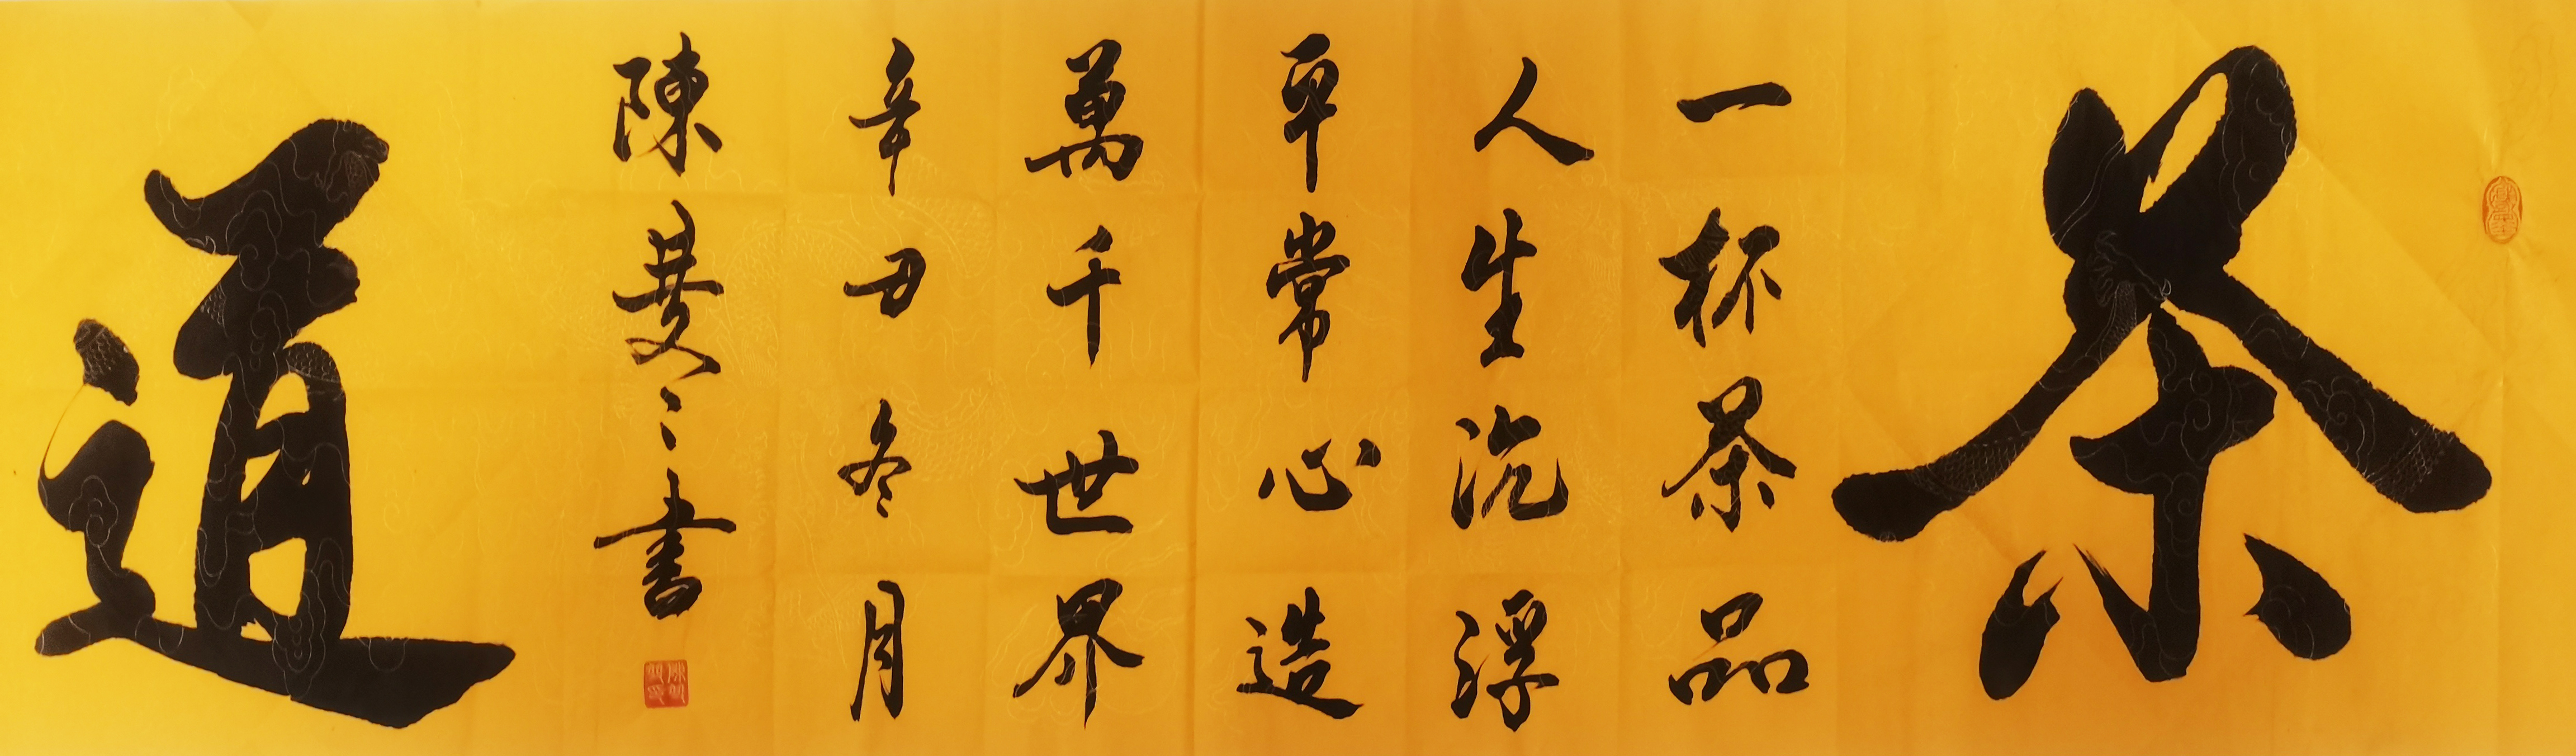 茶
一杯茶品
人生沉浮
平常心造
萬千世界
辛丑冬月
陳書
道